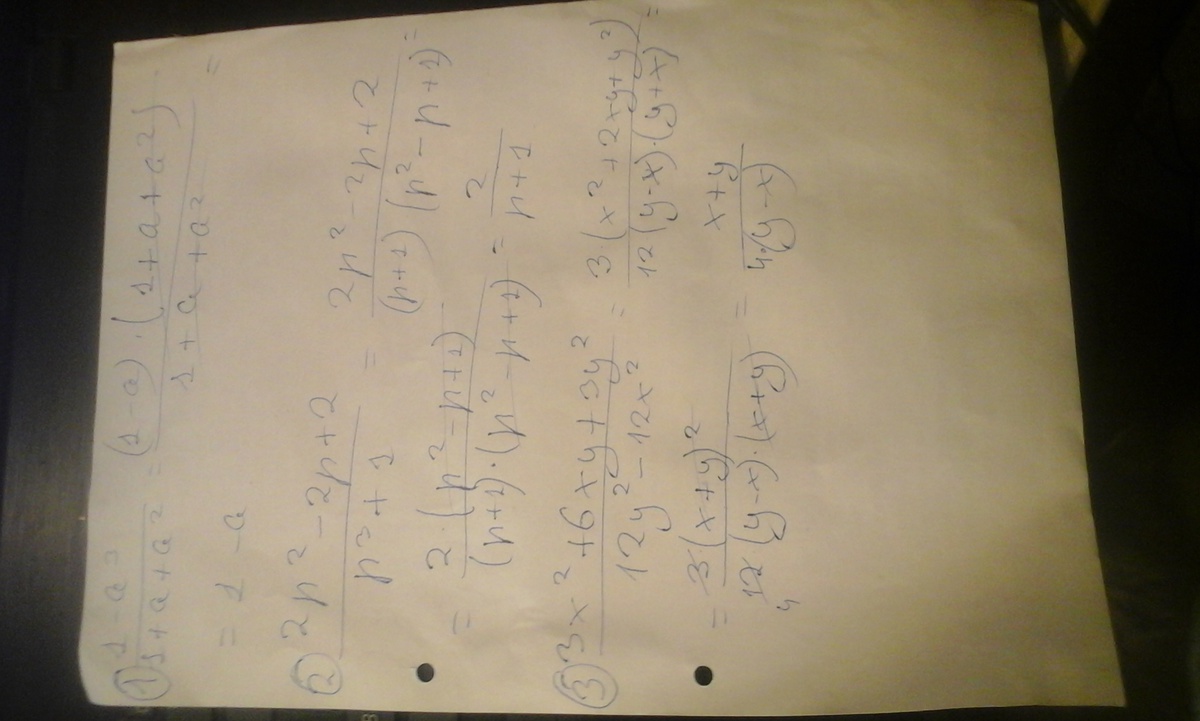 ① (1-a³)/(1+a+a²) = ((1-a)·(1+a+a²))/(1+a+a²) =
= 1-a
② (2p²-2p+2)/(p³+1) = (2p²-2p+2)/((p+1)(p²-p+1)) =
= (2·(p²-p+1))/((p+1)·(p²-p+1)) = 2/(p+1)
③ (3x²+6xy+3y²)/(12y²-12x²) = (3·(x²+2xy+y²))/(12(y-x)·(y+x)) =
= (3(x+y)²)/(12(y-x)·(x+y)) = (x+y)/(4·(y-x))
4